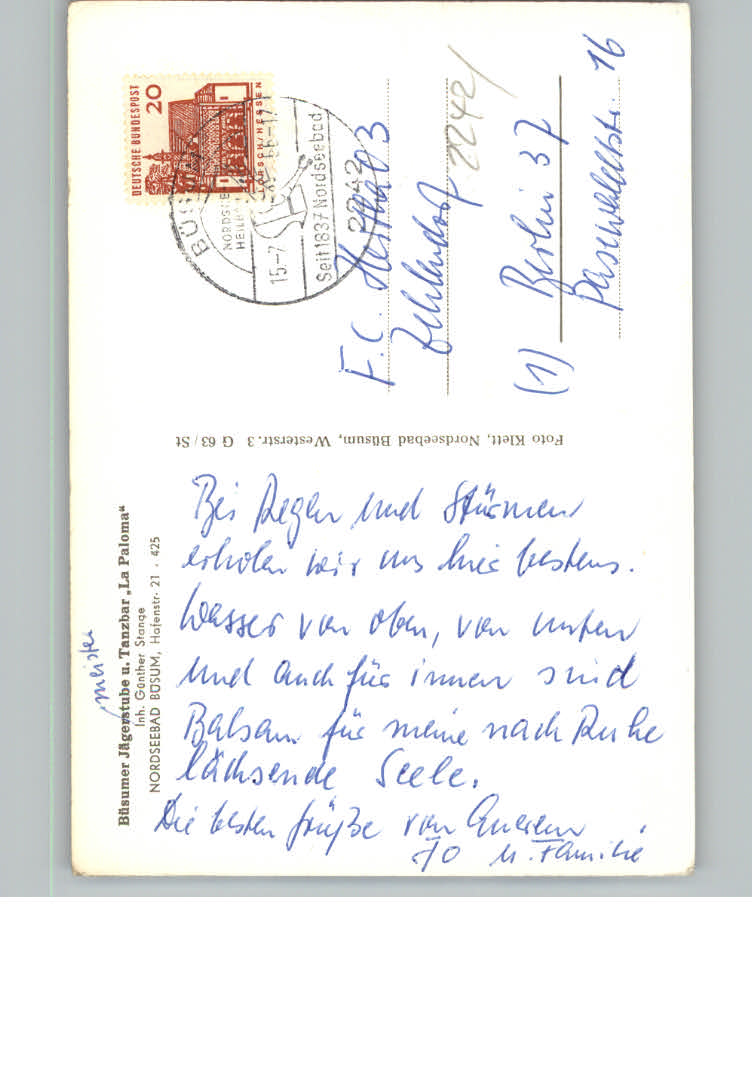 Büsumer Jägerstube u. Tanzbar „La Paloma“
meister
Inh. Günther Stange
NORDSEEBAD BÜSUM, Hafenstr. 21 · 425
Bei Regen und Stürmen
erholen wir uns hier bestens.
Wasser von oben, von unten
und auch für innen sind
Balsam für meine nach Ruhe
lächsende Seele.
Die besten Grüße von Eurem
Jo u. Familie
Foto Klett, Nordseebad Büsum, Westerstr. 3 G 63/St
DEUTSCHE BUNDESPOST
20
LORSCH/HESSEN
BÜSUM
NORDSEE
HEIL
15.-7.66-17
Seit 1837 Nordseebad
2242
F.C. Hertha 03
Zehlendorf
2242/
(1) Berlin 37
Pasewaldtstr. 16